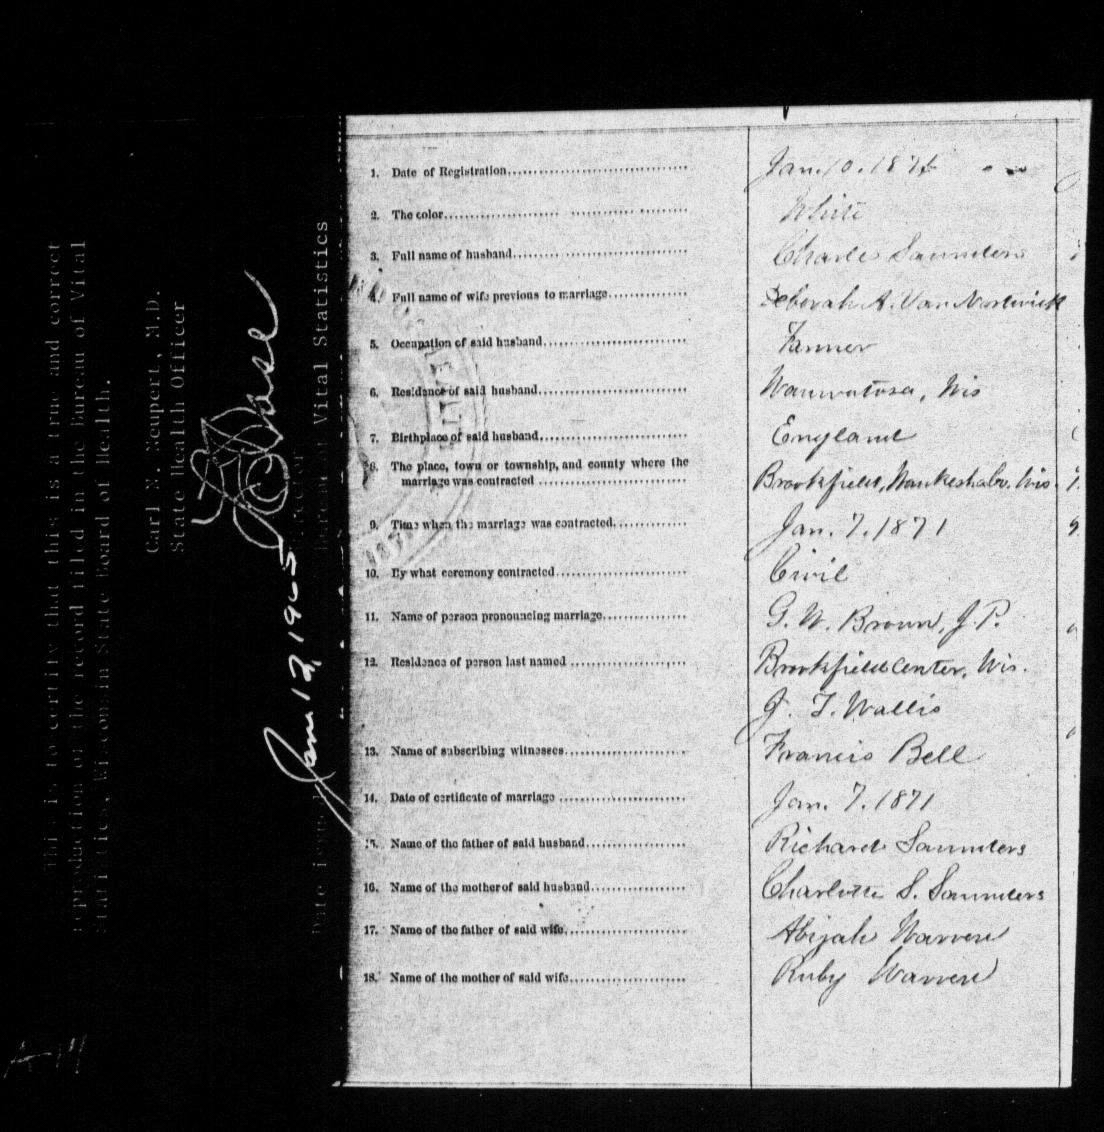 1. Date of Registration Jan. 10. 1871
2. The color White
3. Full name of husband Charles Saunders
4. Full name of wife previous to marriage Deborah A. Van Nortwick
5. Occupation of said husband Farmer
6. Residence of said husband Wauwatosa, Wis
7. Birthplace of said husband England
8. The place, town or township, and county where the
marriage was contracted Brookfield, Waukesha Co. Wis.
9. Time when the marriage was contracted Jan. 7. 1871
10. By what ceremony contracted Civil
11. Name of person pronouncing marriage G. W. Brown, J. P.
12. Residence of person last named Brookfield Center, Wis.
J. T. Wallis
13. Name of subscribing witnesses Francis Bell
14. Date of certificate of marriage Jan. 7. 1871
15. Name of the father of said husband Richard Saunders
16. Name of the mother of said husband Charlotte S. Saunders
17. Name of the father of said wife Abijah Warren
18. Name of the mother of said wife Ruby Warren
This is to certify that this is a true and correct
reproduction of the record filed in the Bureau of Vital
Statistics, Wisconsin State Board of Health.
Carl N. Neupert, M.D.
State Health Officer
Vital Statistics
Date issued Jan 12, 1965
A-14